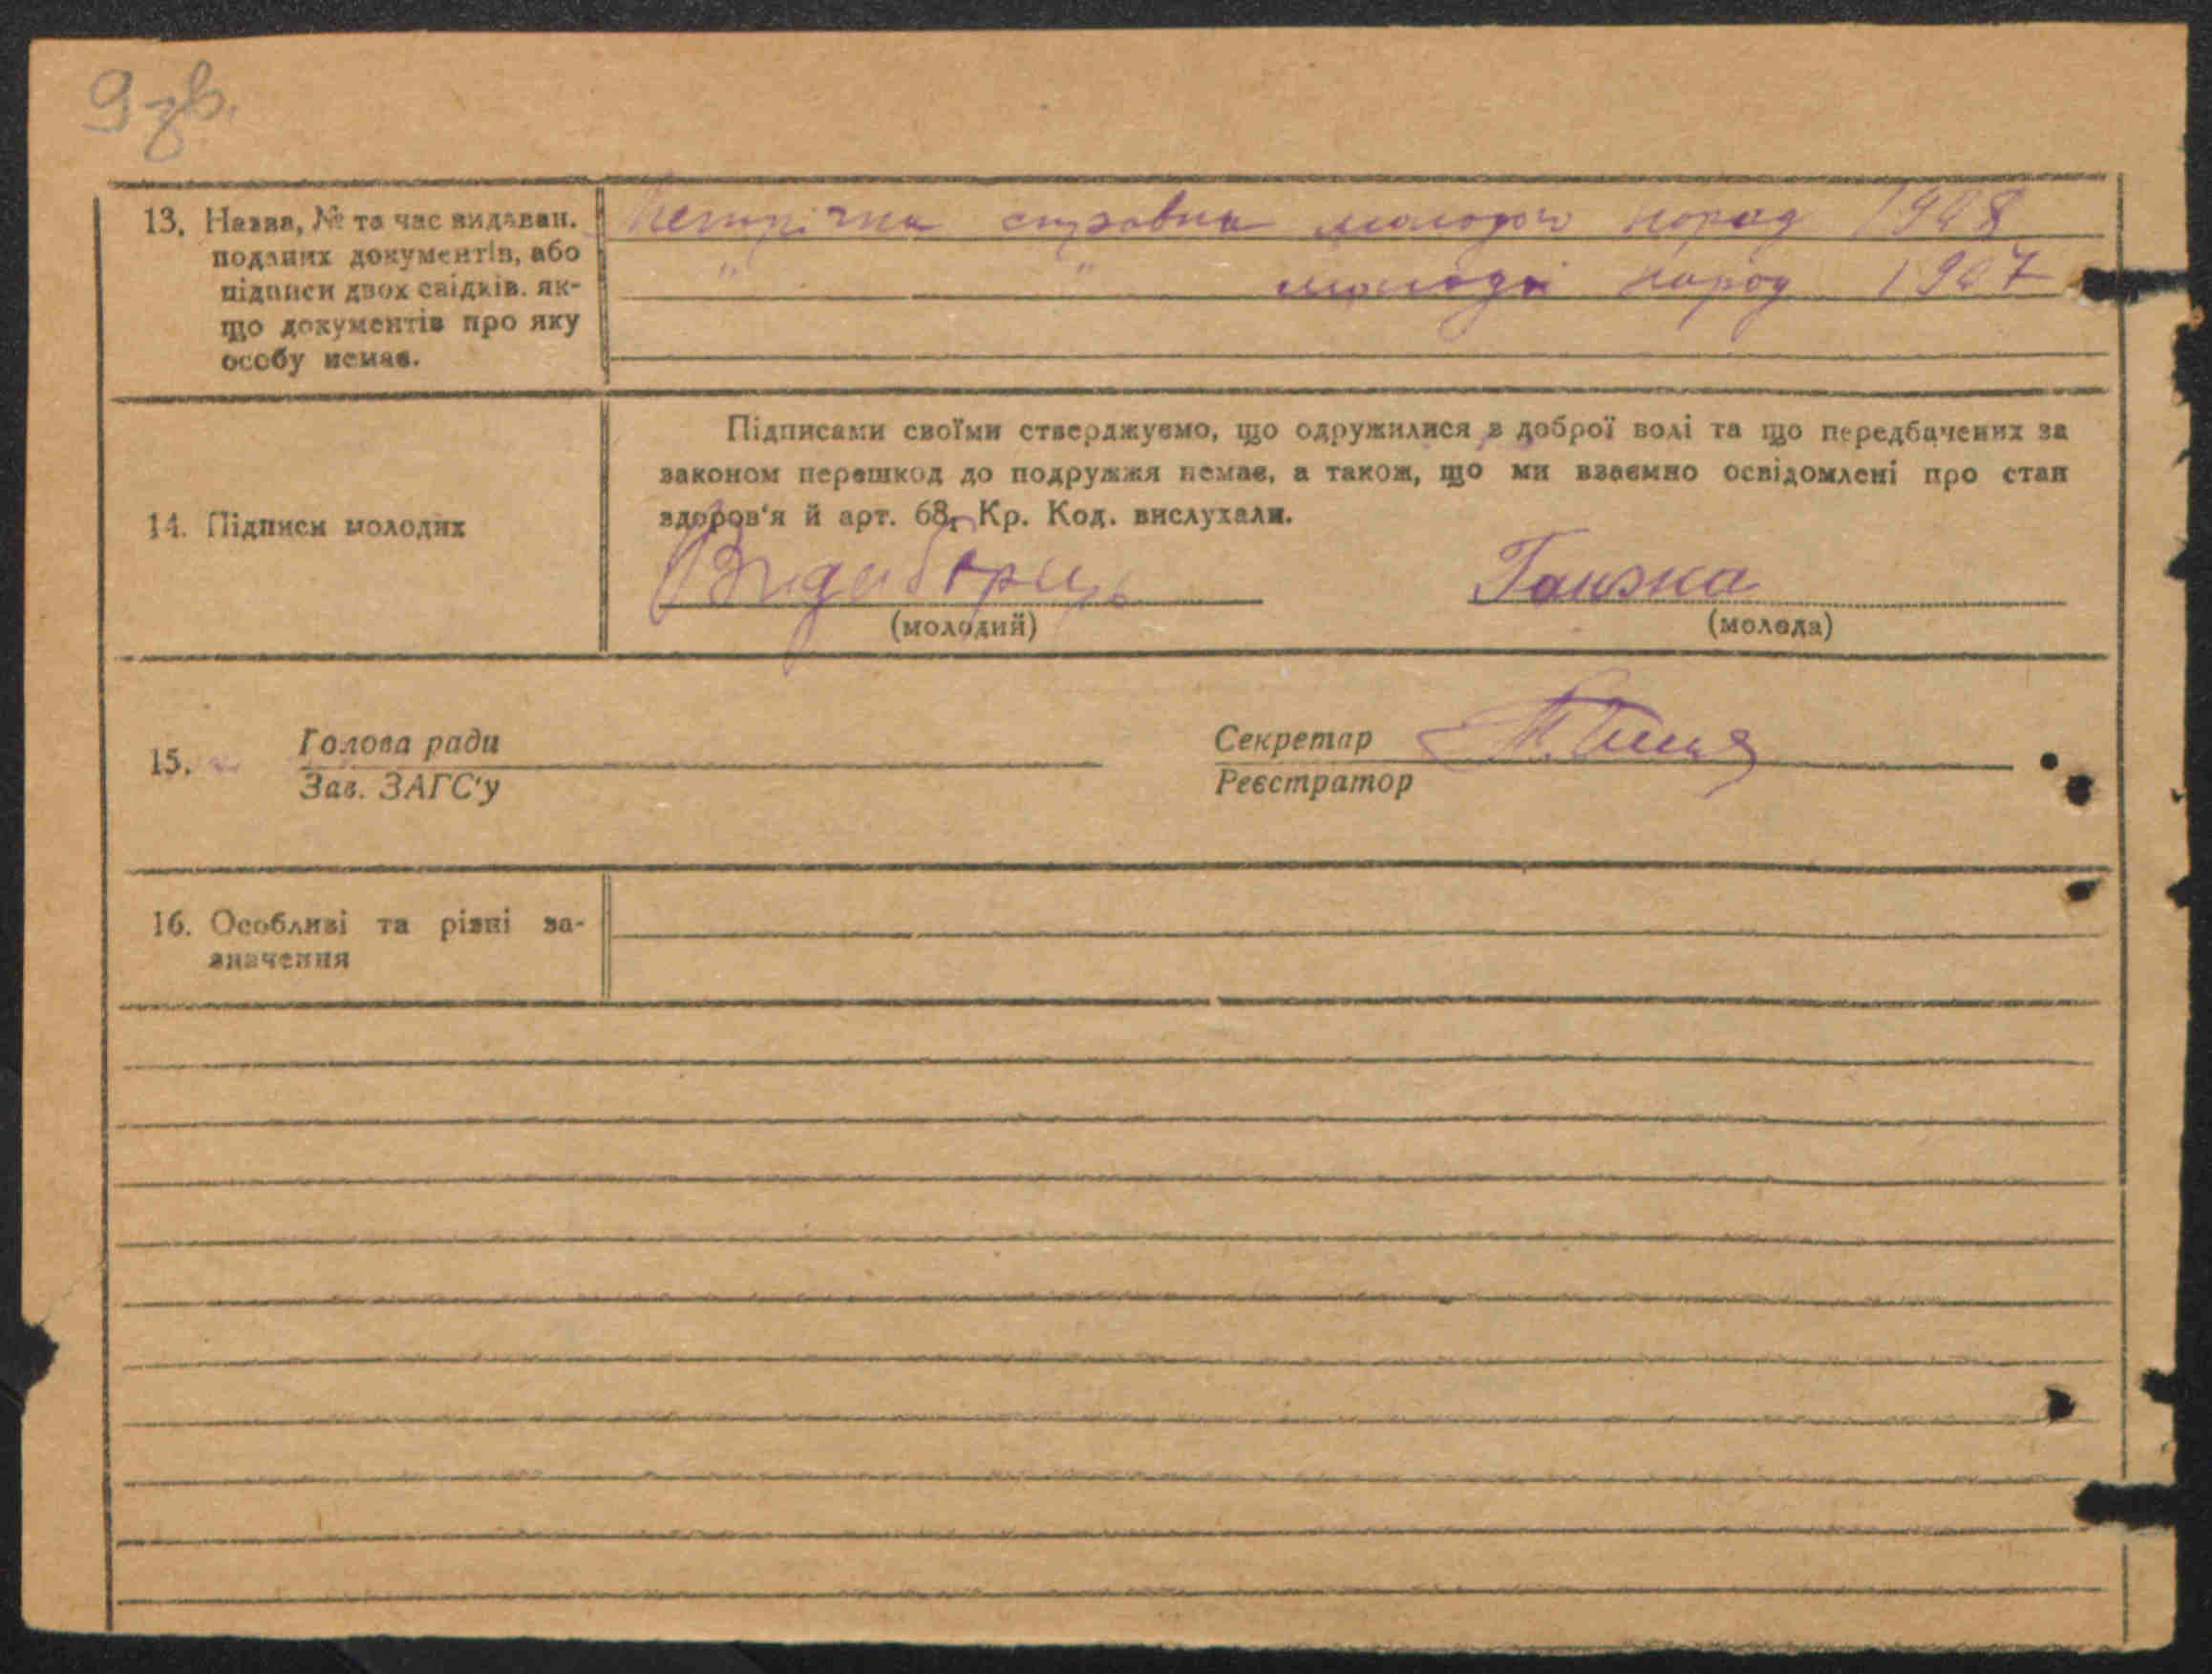 9 зв.
13. Назва, № та час видаван.
поданих документів, або
підписи двох свідків, як-
що документів про яку
особу немає.
Метрічна справка молодого народ 1908
" " молодої народ 1907
14. Підписи молодих
Підписами своїми стверджуємо, що одружилися з доброї волі та що передбачених за
законом перешкод до подружжя немає, а також, що ми взаємно освідомлені про стан
здоров'я й арт. 68, Кр. Код. вислухали.
Видиборець
Ганжа
(молодий)
(молода)
15. Голова ради
Зав. ЗАГС'у
Секретар
Реєстратор
16. Особливі та різні за-
значення